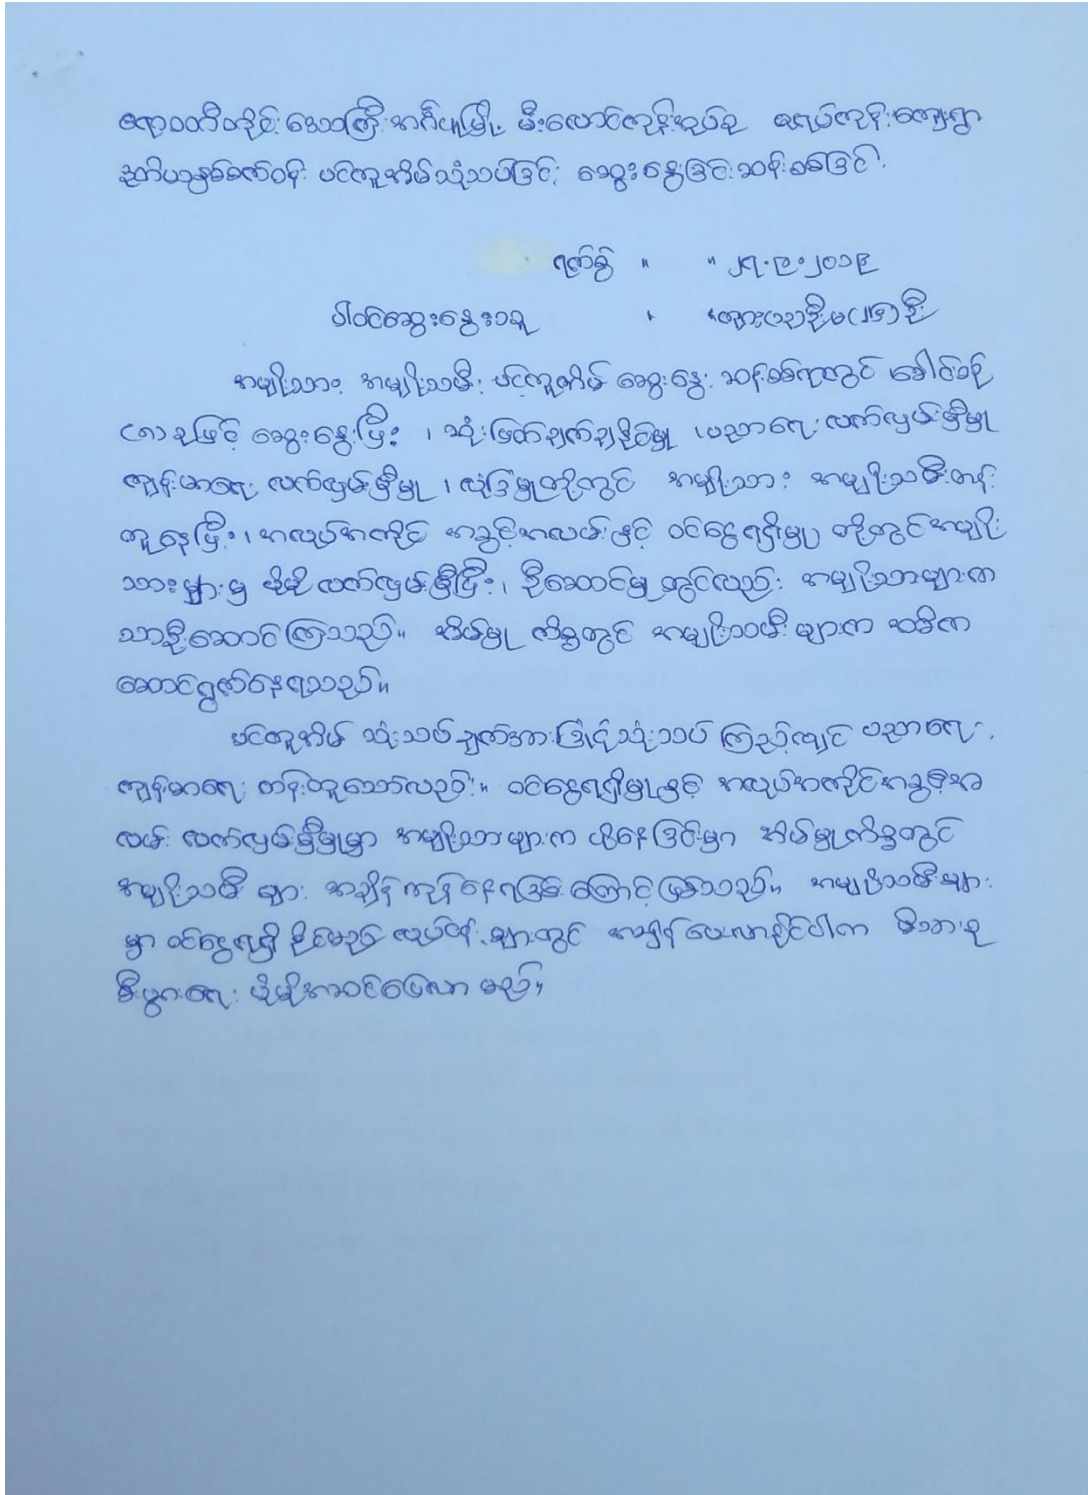 ဧရာဝတီတိုင်းဒေသကြီး အင်္ဂပူမြို့ မီးလောင်ကုန်းအုပ်စု ရေပ်ကုန်းကျေးရွာ
ဒုတိယသုနှစ်စက်ဝန်း ပင်တူအိမ်သုံးသပ်ခြင်း ဆွေးနွေးခြင်းဆန်းစစ်ခြင်း
ရက်စွဲ " " ၂၇.၉.၂၀၁၉
ပါဝင်ဆွေးနွေးသူ " "ကျား(၁၃)ဦးမ(၂၆)ဦး
အမျိုးသား၊ အမျိုးသမီး ပင်တူအိမ် ဆွေးနွေးဆန်းစစ်ရာတွင် ခေါင်းစဉ်
(၈)ခုဖြင့် ဆွေးနွေးပြီး ၊ ဆုံးဖြတ်ချက်ချနိုင်မှု ၊ပညာရေးလက်လှမ်းမှီမှု
ကျန်းမာရေး လက်လှမ်းမှီမှု ၊ လုံခြုံမှုတို့တွင် အမျိုးသား အမျိုးသမီးတန်း
တူနေပြီး ၊ အလုပ်အကိုင် အခွင့်အလမ်းနှင့် ဝင်ငွေရရှိမှု တို့တွင်အမျိုး
သားများမှ ပိုမိုလက်လှမ်းမှီပြီး ၊ ဦးဆောင်မှုတွင်လည်း အမျိုးသားများက
သာဦးဆောင်ကြသည်။ အိမ်မှု ကိစ္စတွင် အမျိုးသမီးများက အဓိက
ဆောင်ရွက်နေရသည်။
ပင်တူအိမ် သုံးသပ်ချက်အားခြုံငုံသုံးသပ် ကြည့်လျှင် ပညာရေး၊
ကျန်းမာရေး တန်းတူသော်လည်း။ ဝင်ငွေရရှိမှုနှင့် အလုပ်အကိုင်အခွင့်အ
လမ်း လက်လှမ်းမှီမှုမှာ အမျိုးသားများက ပိုနေခြင်းမှာ အိမ်မှုကိစ္စတွင်
အမျိုးသမီးများ အချိန်ကုန်နေရခြင်းကြောင့်ဖြစ်သည်။ အမျိုးသမီးများ
မှာ ဝင်ငွေရရှိ နိုင်မည့် လုပ်ငန်းများတွင် အချိန်ပေးလာနိုင်ပါက မိသားစု
စီးပွားရေး ပိုမိုအဆင်ပြေလာ မည်။